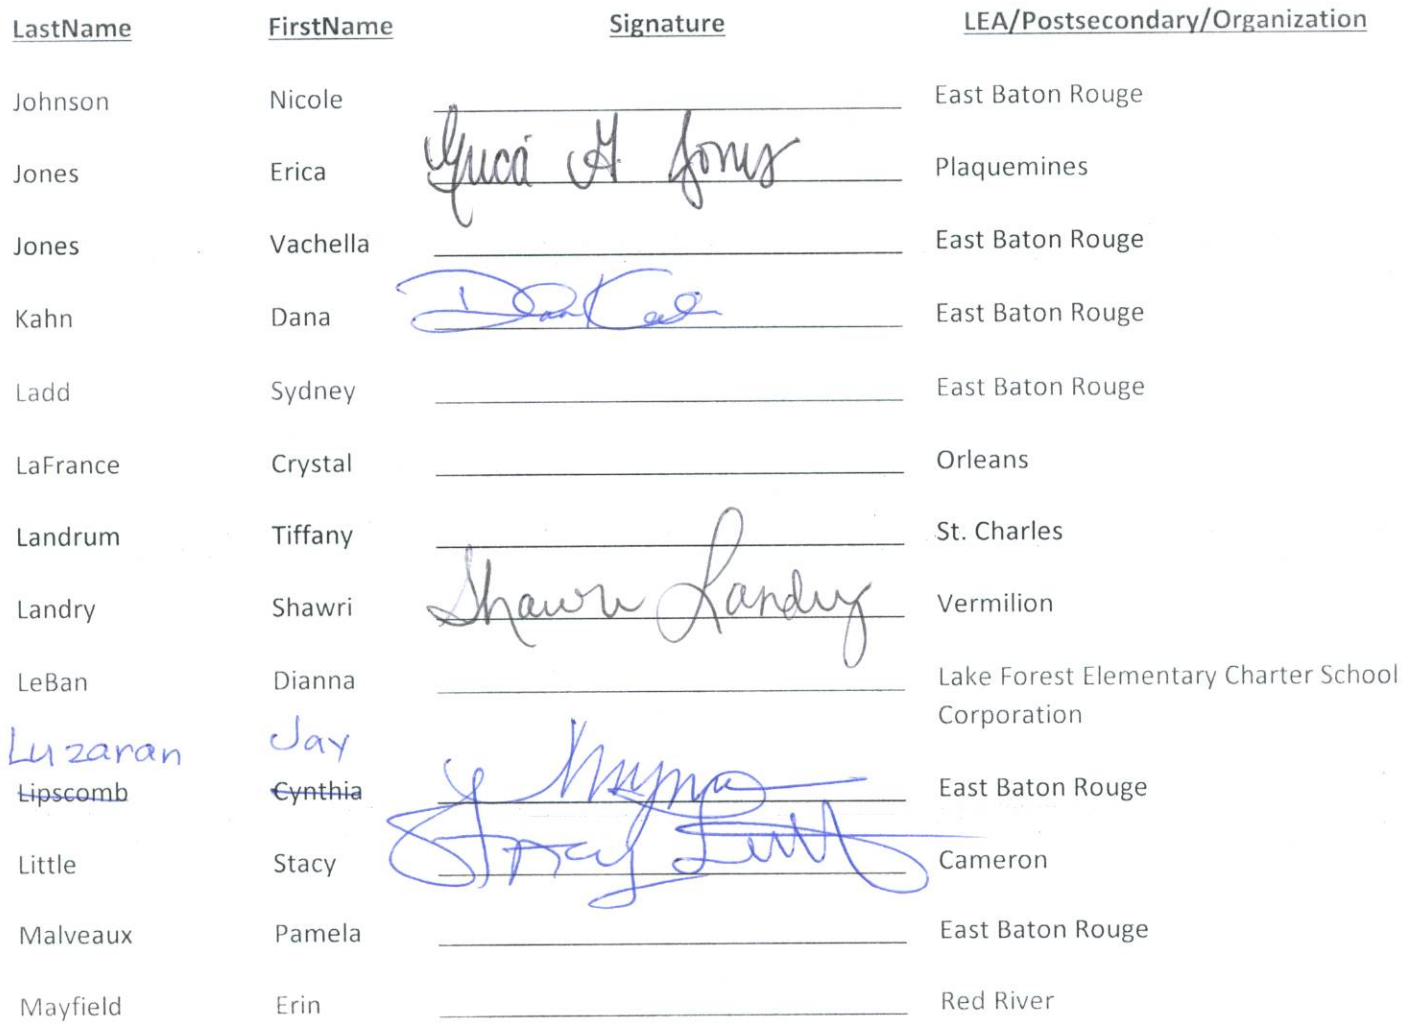 LastName FirstName Signature LEA/Postsecondary/Organization
Johnson Nicole East Baton Rouge
Jones Erica Erica G Jones Plaquemines
Jones Vachella East Baton Rouge
Kahn Dana Dana Kahn East Baton Rouge
Ladd Sydney East Baton Rouge
LaFrance Crystal Orleans
Landrum Tiffany St. Charles
Landry Shawri Shawri Landry Vermilion
LeBan Dianna Lake Forest Elementary Charter School
Corporation
Luzaran Jay
Lipscomb Cynthia East Baton Rouge
Little Stacy Stacy Little Cameron
Malveaux Pamela East Baton Rouge
Mayfield Erin Red River